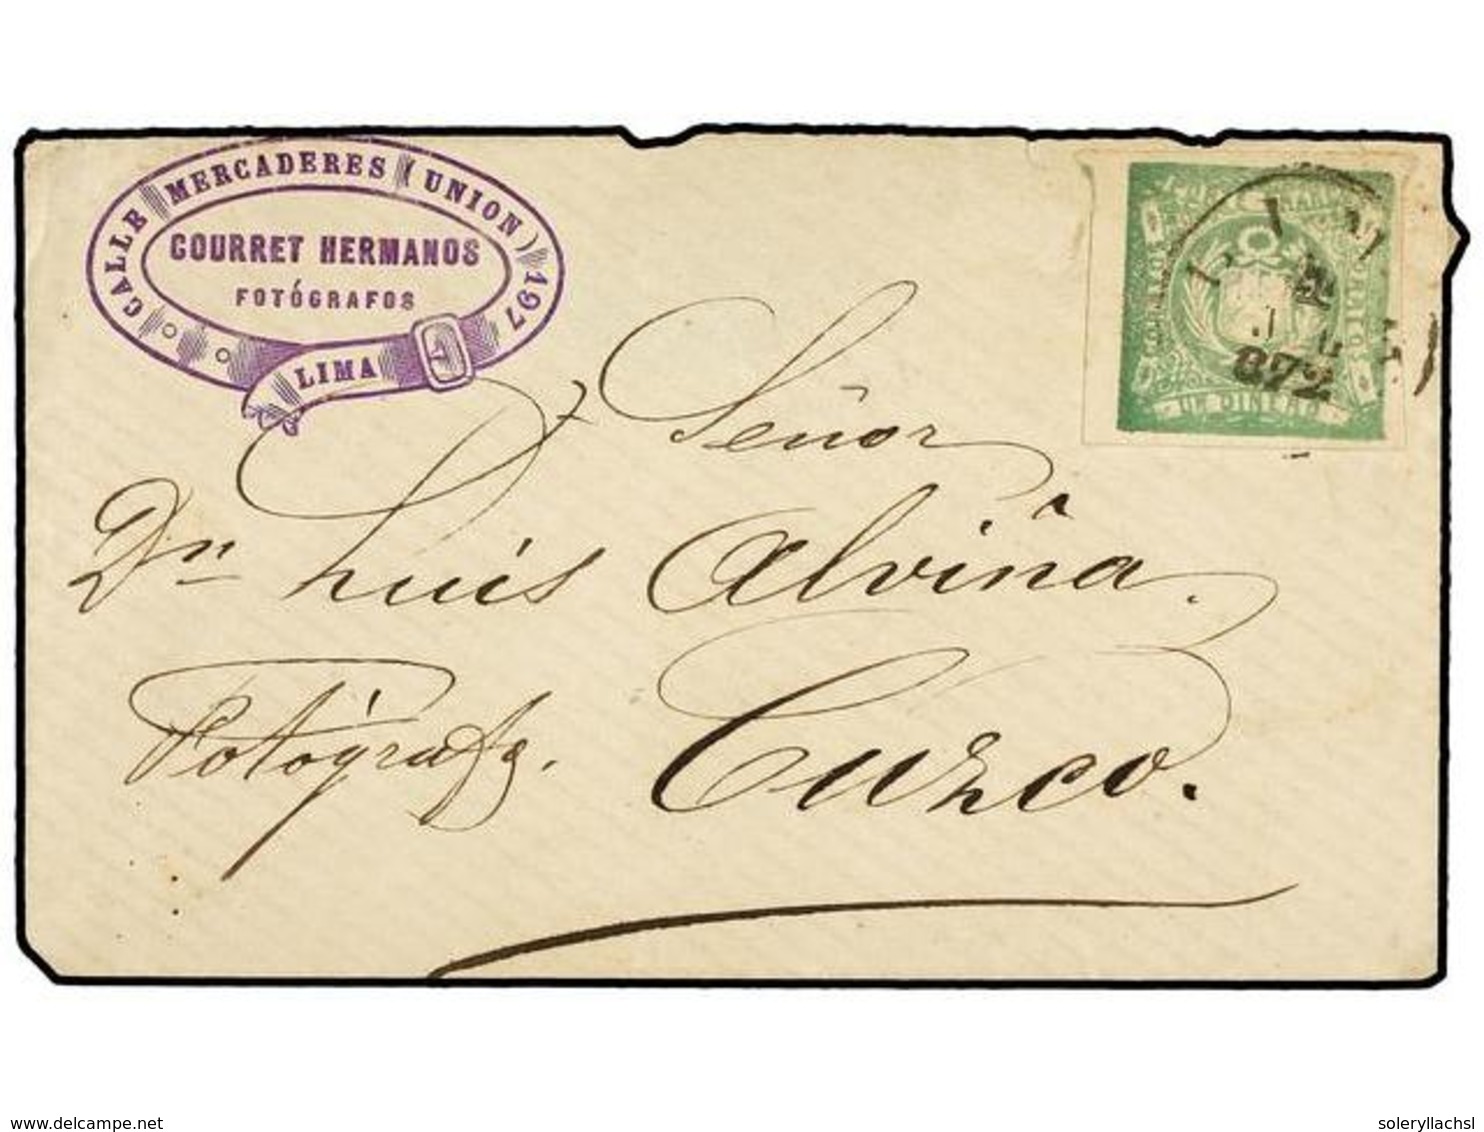 CALLE MERCADERES (UNION) 197
COURRET HERMANOS
FOTÓGRAFOS
LIMA
872
UN DINERO
Señor
Dn Luis Alviña.
Fotógrafo.
Cuzco.
www.delcampe.net
soleryllachsl